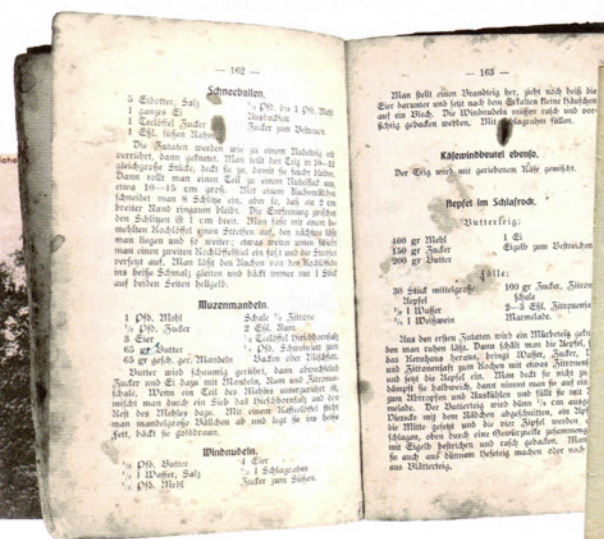 — 162 —
Schneeballen.
5 Eidotter, Salz
1 ganzes Ei
1 Teelöffel Zucker
1 Eßl. süßen Rahm
Pfd. bis 1 Pfd. Mehl
Ausbacken
Zucker zum Bestreuen.
Die Zutaten werden wie zu einem Nudelteig
verrührt, dann geknetet. Man teilt den Teig in 10—12
gleichgroße Stücke, deckt sie zu, damit sie feucht bleiben.
Dann rollt man einen Teil zu einem Nudelfleck aus,
etwa 10—15 cm groß. Mit einem
schneidet man 8 Schlitze ein, aber so, daß ein 2 cm
breiter Rand ringsum bleibt. Die Entfernung zwischen
den Schlitzen ist 1 cm breit. Man faßt mit einem be-
mehlten Kochlöffel einen Streifen auf, den nächsten läßt
man liegen und so weiter; etwas weiter unten
man einen zweiten Kochlöffelstiel ein und die Streifen
versetzt auf. Man läßt den Kuchen von den
ins heiße Schmalz gleiten und bäckt immer nur 1 Stück
auf beiden Seiten hellgelb.
Muzenmandeln.
1 Pfd. Mehl
Pfd. Zucker
3 Eier
65 gr Butter
65 gr gesch. ger. Mandeln
Schale ½ Zitrone
2 Eßl. Rum
Teelöffel Hirschhornsalz
Pfd. Schweinfett zum
Backen oder
Butter wird schaumig gerührt, dann abwechselnd
Zucker und Ei dazu mit Mandeln, Rum und Zitronen-
schale. Wenn ein Teil des Mehles untergerührt ist,
mischt man durch ein Sieb das Hirschhornsalz und den
Rest des Mehles dazu. Mit einem Kaffeelöffel sticht
man mandelgroße Bällchen ab und legt sie ins heiße
Fett, bäckt sie goldbraun.
Windnudeln.
Pfd. Butter
l Wasser, Salz
Pfd. Mehl
4 Eier
l Schlagrahm
Zucker zum Süßen.
— 163 —
Man stellt einen Brandteig her, zieht noch heiß die
Eier darunter und setzt nach dem Erkalten kleine Häufchen
auf ein Blech. Die Windnudeln müssen rasch und vor-
sichtig gebacken werden. Mit Schlagrahm füllen.
Käsewindbeutel ebenso.
Der Teig wird mit geriebenem Käse gemischt.
Aepfel im Schlafrock.
Butterteig:
400 gr Mehl
150 gr Zucker
200 gr Butter
1 Ei
Eigelb zum Bestreichen
Fülle:
30 Stück mittelgroße
Aepfel
l Wasser
l Weißwein
100 gr Zucker,
schale
2—3 Eßl.
Marmelade.
Aus den ersten Zutaten wird ein Mürbeteig
den man ruhen läßt. Dann schält man die Aepfel,
das Kernhaus heraus, bringt Wasser, Zucker,
und Zitronensaft zum Kochen mit etwas
und setzt die Aepfel ein. Man deckt sie nicht
dämpft sie halbweich, dann nimmt man sie auf ein
zum Abtropfen und Auskühlen und füllt sie mit
melade. Der Butterteig wird dünn ½ cm
Vierecke mit dem Rädchen abgeschnitten, ein
die Mitte gesetzt und die vier Zipfel werden
schlagen, oben durch eine Gewürznelke
mit Eigelb bestrichen und rasch gebacken. Man
sie auch aus dünnem Hefeteig machen oder
aus Blätterteig.